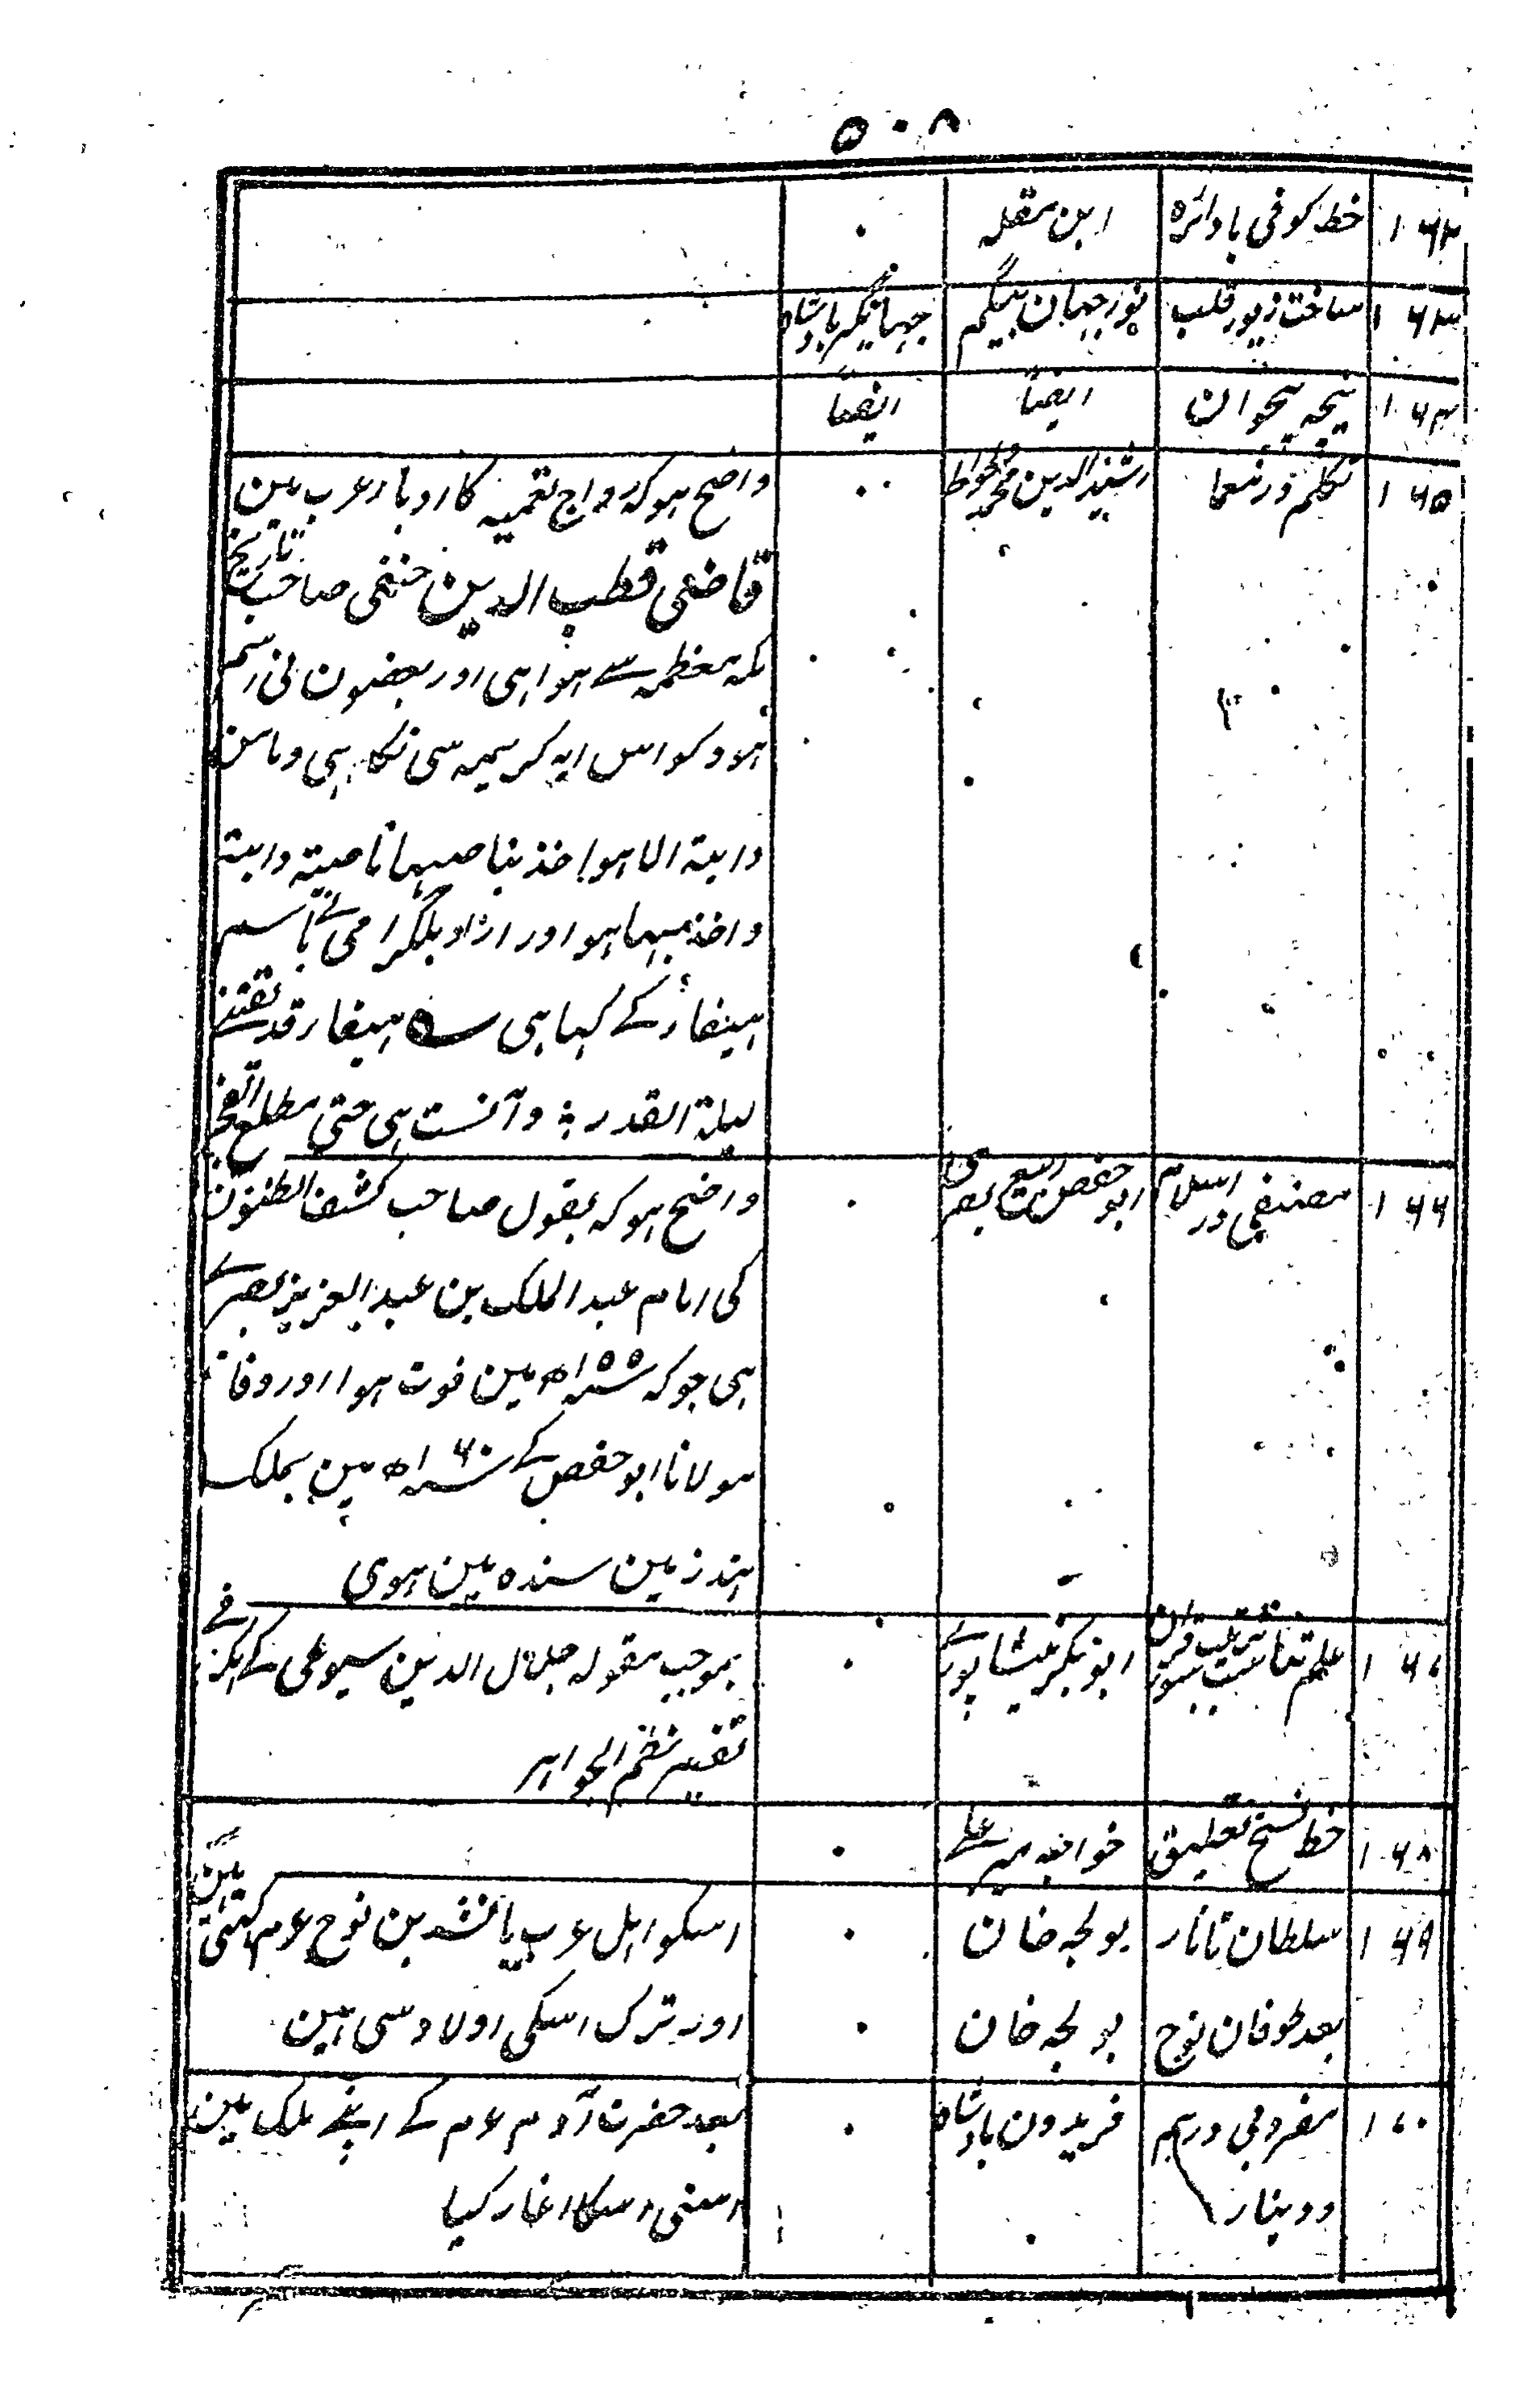 ۵۰۸
۱۶۲ خط کوفی با دائرہ ابن مقلہ ۰
۱۶۳ ساخت زیور قلب نورجہان بیگم جہانگیر بادشاہ
۱۶۴ نیچہ پیچوان ایضاً ایضاً
۱۶۵ تکلم در معما رشید الدین محمد وطواط ۰۰ واضح ہو کہ رواج تعمیہ کا دیار عرب مین
قاضی قطب الدین حنفی صاحب تاریخ
مکہ معظمہ سے ہوا ہی اور بعضون نی اسم
ہود کو اس ایہ کریمہ سی نکالا ہی وما من
دابتہ الا ہو اخذ بناصیہا ناصیۃ دابتہ
واخذ میہا ہو اور ازاد بلگرامی نے باسم
ہیفا کے کہا ہی ؎ ہیفا قد
لیلۃ القدر ؛ وآنست ہی حتی مطلع الفجر
۱۶۶ مصنفی در اسلام ابو حفص ربیع بصری ۰ واضح ہو کہ بقول صاحب کشف الظنون
کی امام عبد الملک بن عبد العزیز بصرے
ہی جو کہ ۱۵۵ھ مین فوت ہوا اور وفات
مولانا ابو حفص کے ۱۶۰ھ مین بملک
ہند زمین سندہ مین ہوی
۱۶۷ علم تناسب ترتیب سور قران ابوبکر نیشاپورے ۰ بموجب مقولہ جلال الدین سیوطی کے
تفسیر نظم الجواہر
۱۶۸ خط نسخ تعلیق خواجہ میر علے ۰
۱۶۹ سلطان تاتار بولجہ خان ۰ اسکو اہل عرب یافث بن نوح ع م کہتی ہین
بعد طوفان نوح بولجہ خان ۰ اور ترک اسکی اولاد سی ہین
۱۷۰ مضروبی درہم فریدون بادشاہ ۰ بعد حضرت آدم ع م کے اپنے ملک مین
و دینار اسنی اسکا اغاز کیا